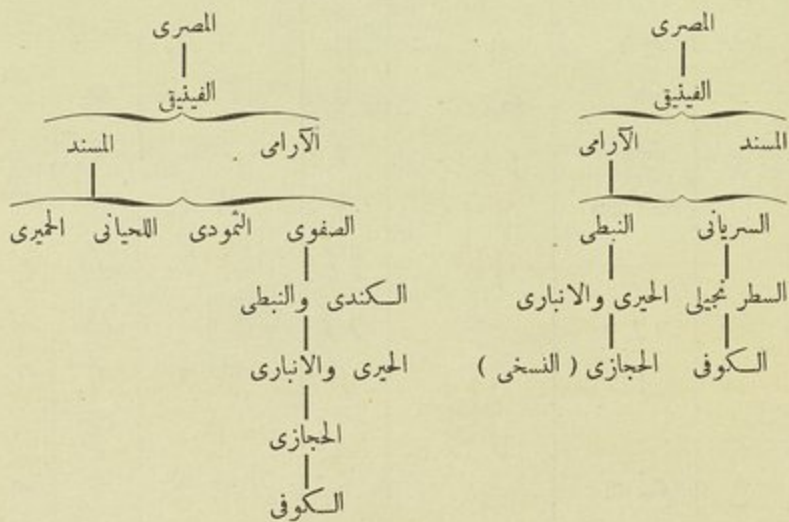 المصرى
الفينيقى
المسند الآرامى
السريانى النبطى
السطر نجيلى الحيرى والانبارى
الكوفى الحجازى ( النسخى )
المصرى
الفينيقى
الآرامى المسند
الصفوى الثمودى اللحيانى الحميرى
الكندى والنبطى
الحيرى والانبارى
الحجازى
الكوفى